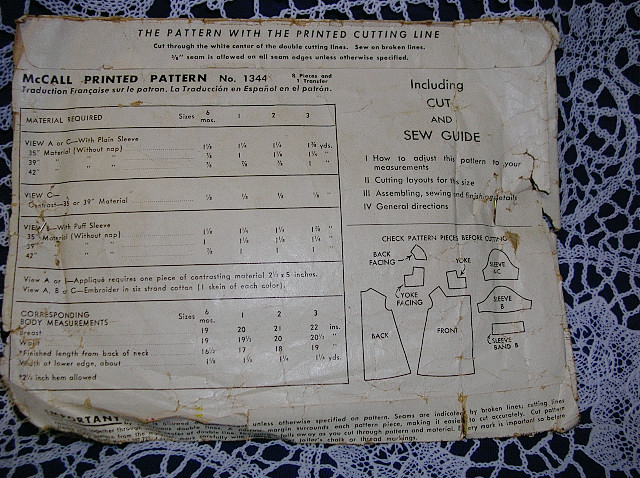 THE PATTERN WITH THE PRINTED CUTTING LINE
Cut through the white center of the double cutting lines. Sew on broken lines.
5/8" seam is allowed on all seam edges unless otherwise specified.
McCALL PRINTED PATTERN No. 1344 8 Pieces and 1 Transfer
Traduction Française sur le patron. La Traducción en Español en el patrón.
MATERIAL REQUIRED Sizes 6 mos. 1 2 3
VIEW A or C—With Plain Sleeve
35" Material (Without nap) yds.
39" " "
42" " "
VIEW C—
Contrast—35 or 39" Material
VIEW B—With Puff Sleeve
35" Material (Without nap)
39" " "
42" " "
View A or —Appliqué requires one piece of contrasting material 2½ x 5 inches.
View A, B or C—Embroider in six strand cotton (1 skein of each color).
CORRESPONDING
BODY MEASUREMENTS Sizes 6 mos. 1 2 3
Breast 19 20 21 22 ins.
Waist 19 19½ 20 20½ "
*Finished length from back of neck 16½ 17 18 19 "
Width at lower edge, about yds.
*2½ inch hem allowed
Including
CUT
AND
SEW GUIDE
I How to adjust this pattern to your
measurements
II Cutting layouts for this size
III Assembling, sewing and finishing details
IV General directions
CHECK PATTERN PIECES BEFORE CUTTING
BACK
FACING
YOKE
SLEEVE
YOKE
FACING
SLEEVE
B
BACK
FRONT
SLEEVE
BAND B
IMPORTANT
unless otherwise specified on pattern. Seams are indicated by broken lines; cutting lines
margin surrounds each pattern piece, making it easier to cut accurately. Cut pattern
away as you cut through pattern and material. Every mark is important so before
tailor's chalk or thread markings.